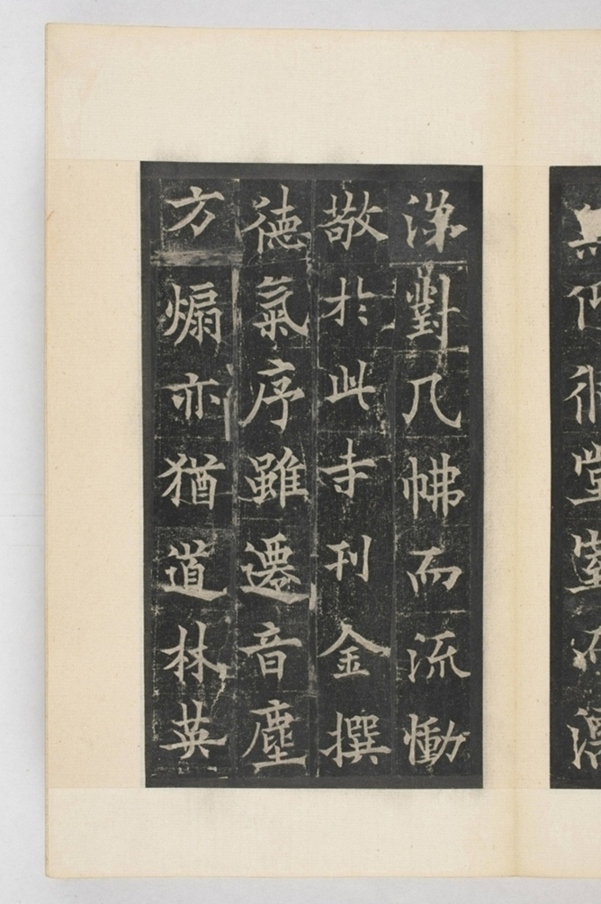 對几而流慟
敬於此寺刊金撰
德氣序雖遷音塵
方煽亦猶道林英